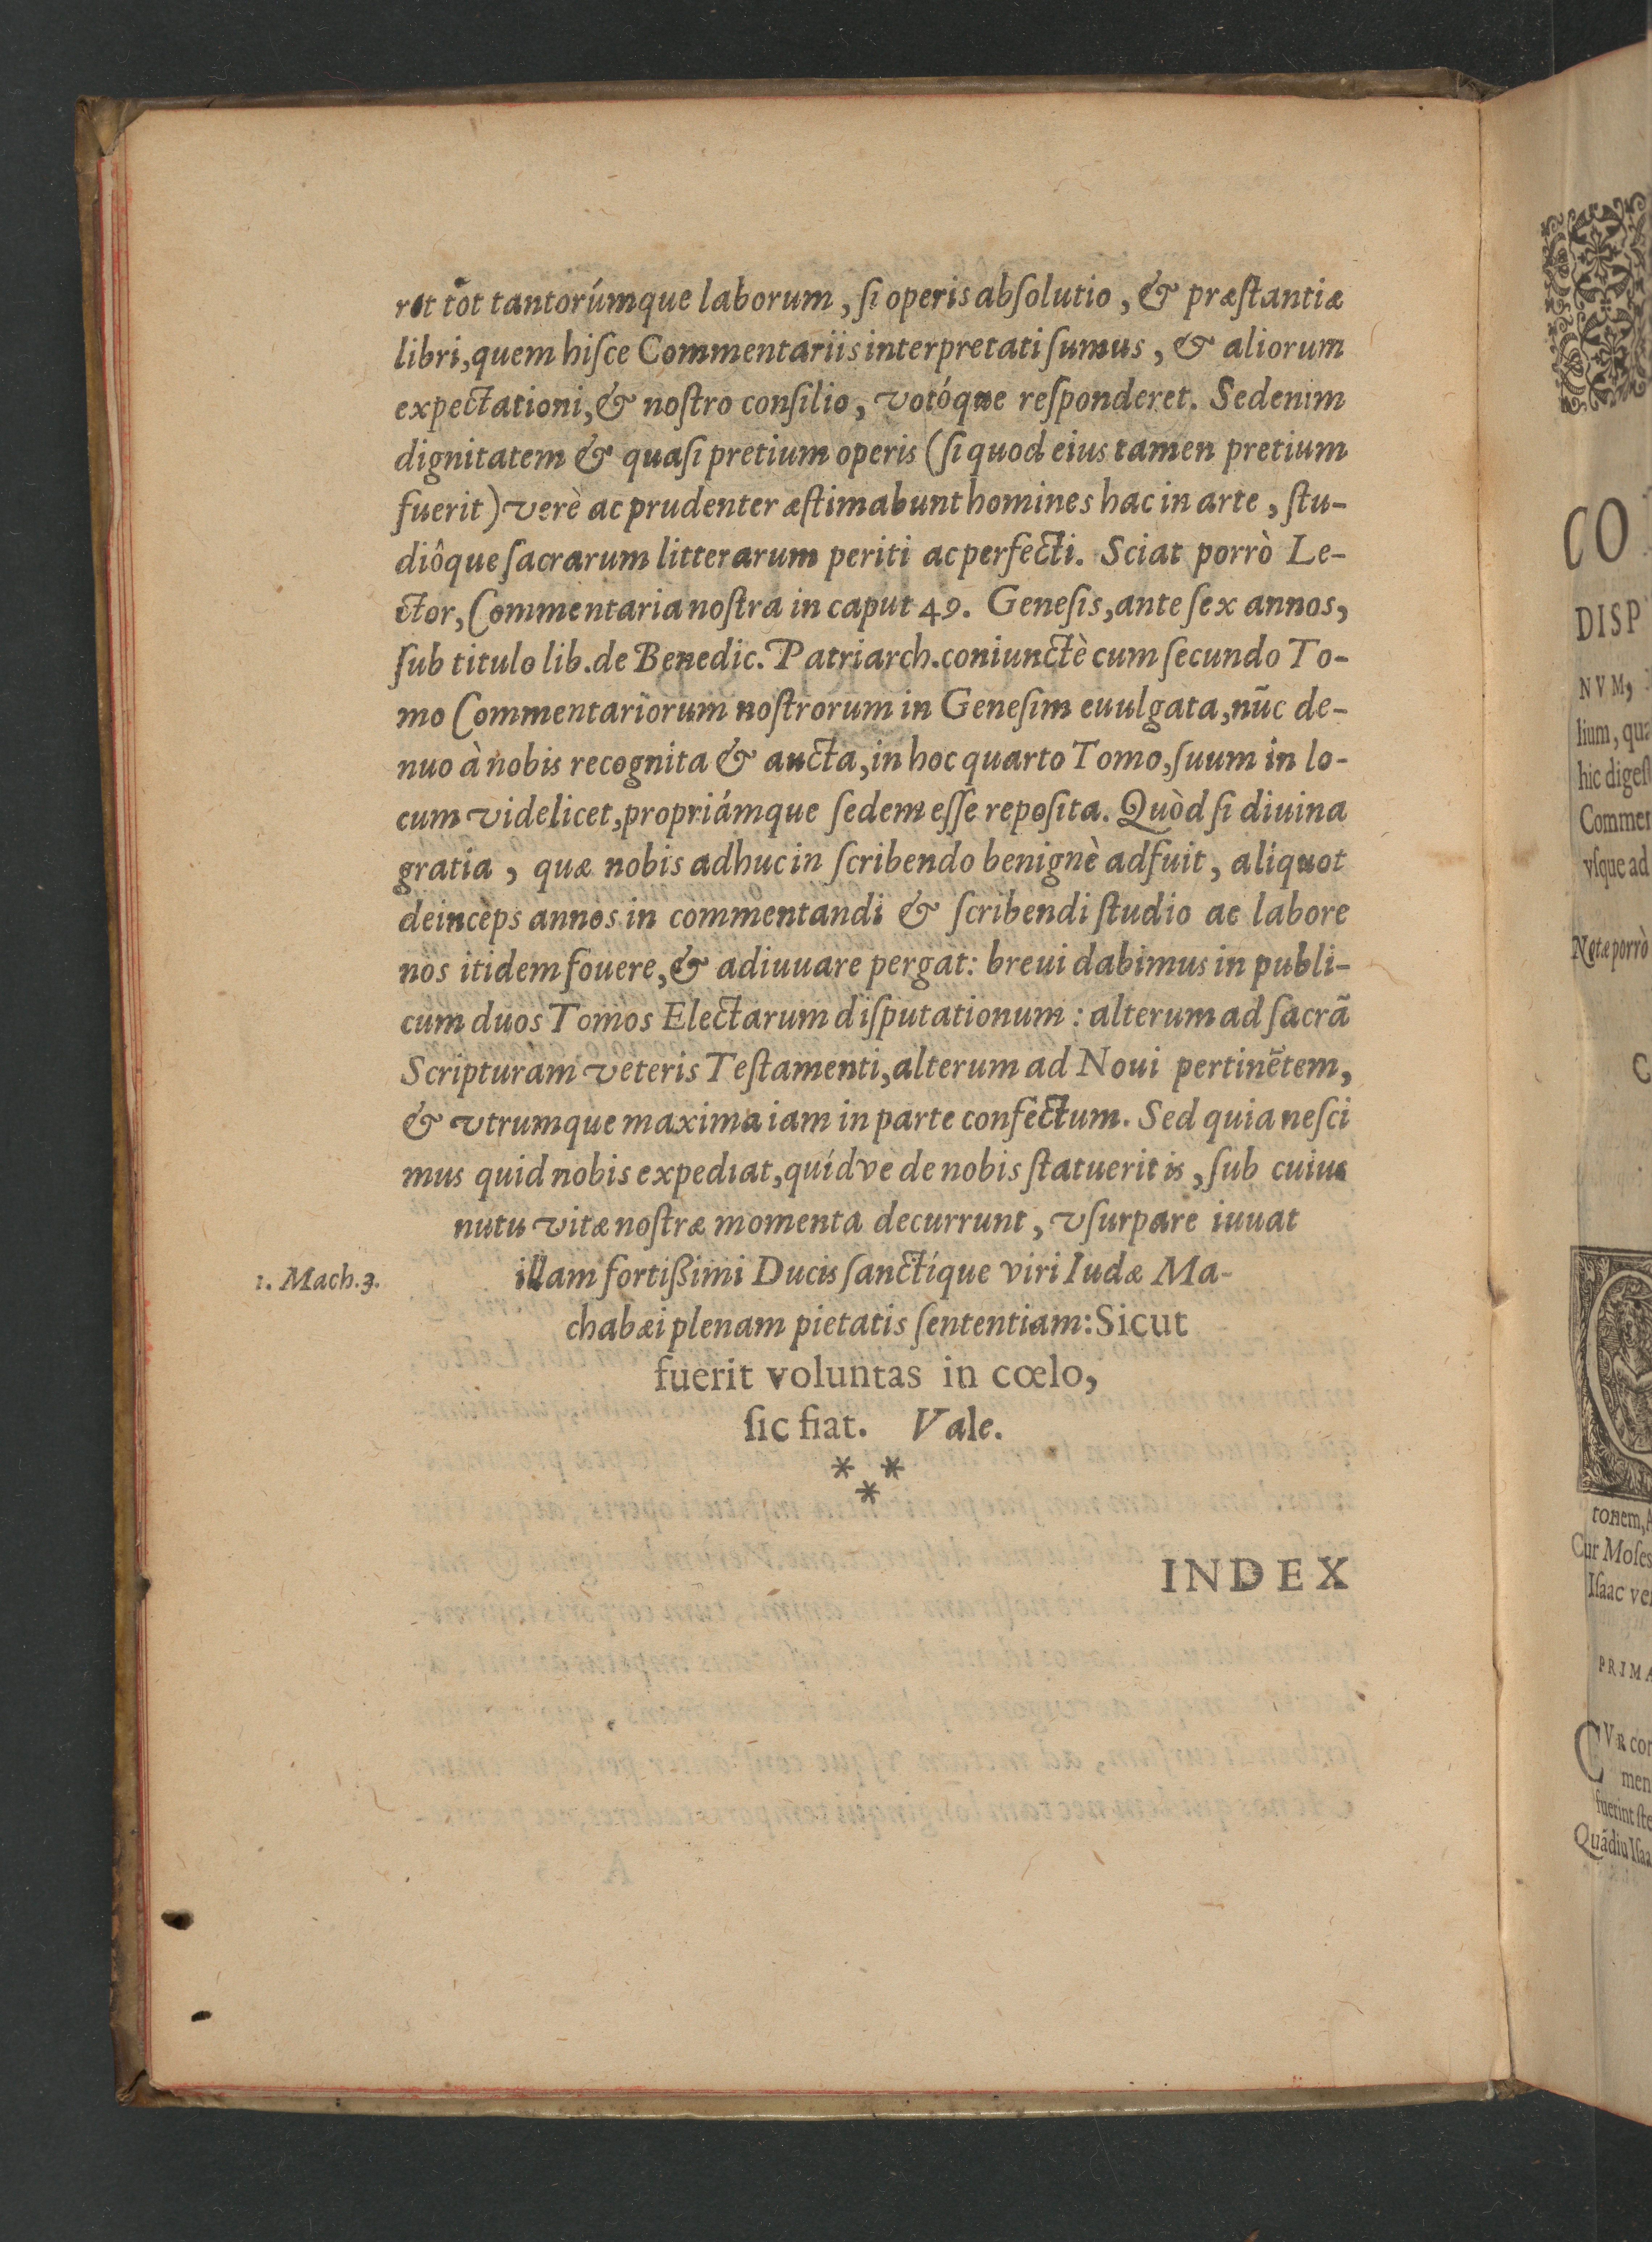 ret tot tantorúmque laborum, ſi operis abſolutio, & præſtantiæ
libri, quem hiſce Commentariis interpretati ſumus, & aliorum
expectationi, & noſtro conſilio, votóque reſponderet. Sed enim
dignitatem & quaſi pretium operis (ſi quod eius tamen pretium
fuerit) verè ac prudenter æſtimabunt homines hac in arte, ſtu-
diôque ſacrarum litterarum periti ac perfecti. Sciat porrò Le-
ctor, Commentaria noſtra in caput 49. Geneſis, ante ſex annos,
ſub titulo lib. de Benedic. Patriarch. coniunctè cum ſecundo To-
mo Commentariorum noſtrorum in Geneſim euulgata, nūc de-
nuo à nobis recognita & aucta, in hoc quarto Tomo, ſuum in lo-
cum videlicet, propriámque ſedem eſſe repoſita. Quòd ſi diuina
gratia, quæ nobis adhuc in ſcribendo benignè adfuit, aliquot
deinceps annos in commentandi & ſcribendi ſtudio ac labore
nos itidem fouere, & adiuuare pergat: breui dabimus in publi-
cum duos Tomos Electarum diſputationum: alterum ad ſacrā
Scripturam veteris Teſtamenti, alterum ad Noui pertinētem,
& vtrumque maxima iam in parte confectum. Sed quia neſci
mus quid nobis expediat, quídve de nobis ſtatuerit is, ſub cuius
nutu vitæ noſtræ momenta decurrunt, vſurpare iuuat
illam fortißimi Ducis ſanctíque viri Iudæ Ma-
1. Mach. 3.
chabæi plenam pietatis ſententiam: Sicut
fuerit voluntas in cœlo,
ſic fiat. Vale.
* *
*
INDEX
CO
DISP
NVM,
lium, qu
hic digeſt
Commen
vſque ad
Notæ porrò
C
tonem, A
Cur Moſes
Iſaac ve
PRIMA
CVR con
men
fuerint ſte
Quādiu Iſaa